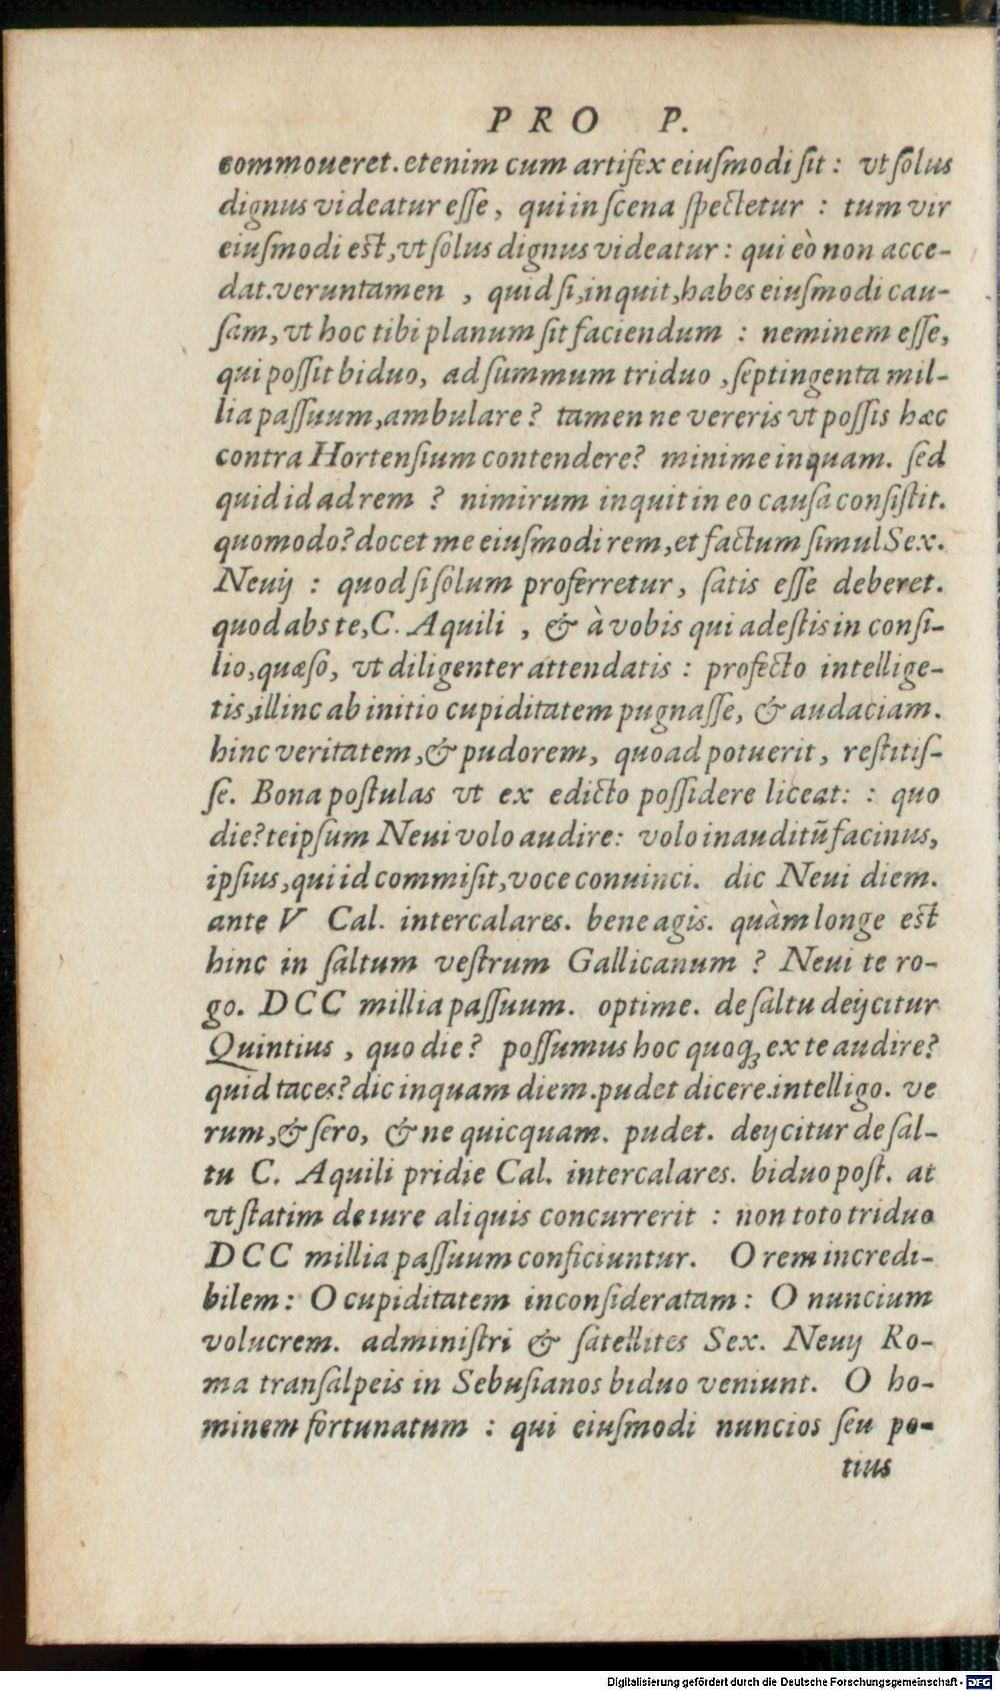 PRO P.
commoueret. etenim cum artifex eiuſmodi ſit : vt ſolus
dignus videatur eſſe, qui in ſcena ſpectetur : tum vir
eiuſmodi eſt, vt ſolus dignus videatur : qui eò non acce-
dat. veruntamen , quid ſi, inquit, habes eiuſmodi cau-
ſam, vt hoc tibi planum ſit faciendum : neminem eſſe,
qui poſſit biduo, ad ſummum triduo , ſeptingenta mil-
lia paſſuum, ambulare? tamen ne vereris vt poſſis hæc
contra Hortenſium contendere? minime inquam. ſed
quid id ad rem ? nimirum inquit in eo cauſa conſiſtit.
quomodo? docet me eiuſmodi rem, et factum ſimul Sex.
Neuij : quod ſi ſolum proferretur, ſatis eſſe deberet.
quod abs te, C. Aquili , & à vobis qui adeſtis in conſi-
lio, quæſo, vt diligenter attendatis : profecto intellige-
tis, illinc ab initio cupiditatem pugnaſſe, & audaciam.
hinc veritatem, & pudorem, quoad potuerit, reſtitiſ-
ſe. Bona poſtulas vt ex edicto poſſidere liceat: : quo
die? teipſum Neui volo audire: volo inauditũ facinus,
ipſius, qui id commiſit, voce conuinci. dic Neui diem.
ante V Cal. intercalares. bene agis. quàm longe eſt
hinc in ſaltum veſtrum Gallicanum ? Neui te ro-
go. DCC millia paſſuum. optime. de ſaltu deijcitur
Quintius , quo die? poſſumus hoc quoqꝫ ex te audire?
quid taces? dic inquam diem. pudet dicere. intelligo. ve
rum, & ſero, & ne quicquam. pudet. deijcitur de ſal-
tu C. Aquili pridie Cal. intercalares. biduo poſt. at
vt ſtatim de iure aliquis concurrerit : non toto triduo
DCC millia paſſuum conficiuntur. O rem incredi-
bilem: O cupiditatem inconſideratam: O nuncium
volucrem. adminiſtri & ſatellites Sex. Neuij Ro-
ma tranſalpeis in Sebuſianos biduo veniunt. O ho-
minem fortunatum : qui eiuſmodi nuncios ſeu po-
tius
Digitalisierung gefördert durch die Deutsche Forschungsgemeinschaft - DFG